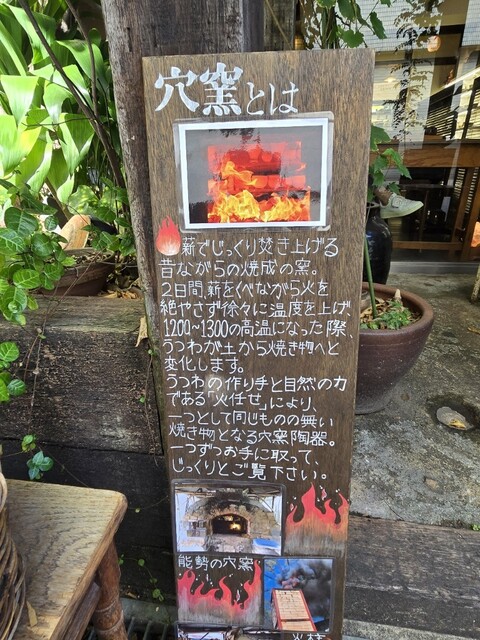 穴窯とは
薪でじっくり焚き上げる
昔ながらの焼成の窯。
2日間、薪をくべながら火を
絶やさず徐々に温度を上げ、
1200~1300の高温になった際、
うつわが土から焼き物へと
変化します。
うつわの作り手と自然の力
である「火任せ」により、
一つとして同じものの無い
焼き物となる穴窯陶器。
一つずつお手に取って、
じっくりとご覧下さい。
能勢の穴窯